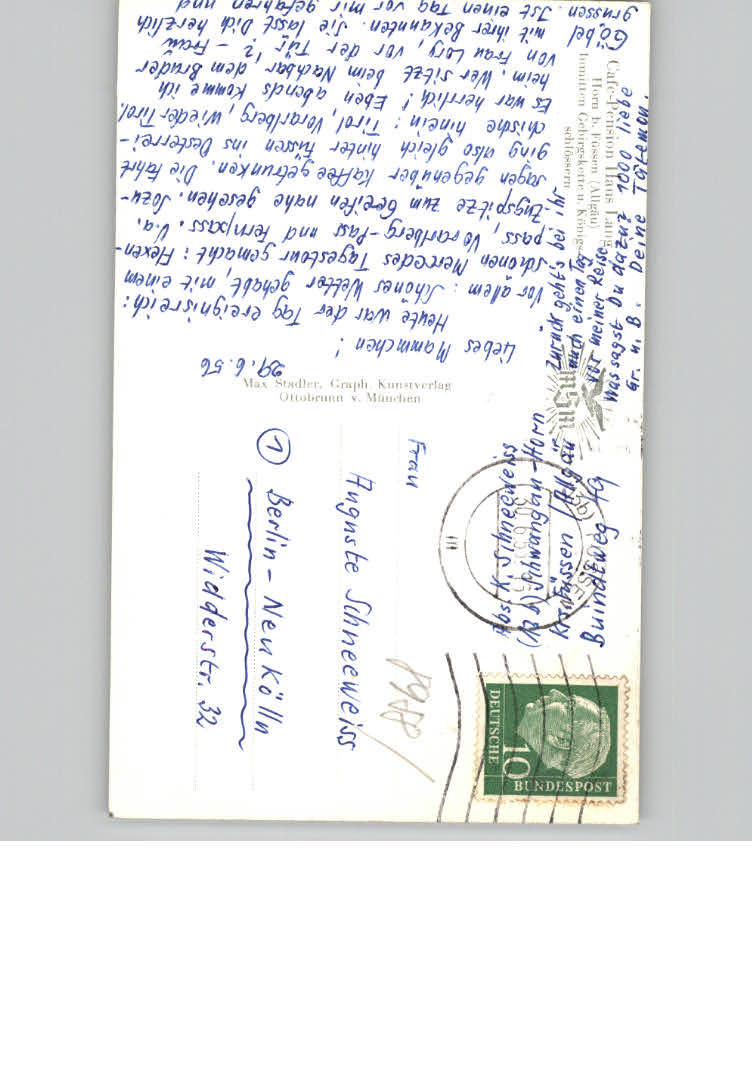 29.6.56
Liebes Mammchen!
Heute war der Tag ereignisreich:
Vor allem: Schönes Wetter gehabt, mit einem
schönen Mercedes Tagestour gemacht: Hexen-
pass, Vorarlberg-Pass und Fernpass. U.a.
Zugspitze zum Greifen nahe gesehen. Sozu-
sagen gegenüber Kaffee getrunken. Die Fahrt
ging also gleich hinter Füssen ins Oesterrei-
chische hinein: Tirol, Vorarlberg, wieder Tirol.
Es war herrlich! Eben abends komme ich
heim. Wer sitzt beim Nachbar dem Bruder
von Frau Lory, vor der Tür!? – Frau
Göbel mit ihrer Bekannten. Sie lässt Dich herzlich
grüssen. Ist einen Tag vor mir gefahren und
zurück geht's bei ihr
auch einen Tag
vor meiner Reise.
Was sagst Du dazu? 1000 liebe
Gr. u. B. Deine Tätemon.
Cafe-Pension Hans Lang
Horn b. Füssen (Allgäu)
Inmitten Gebirgskette u. Königs-
schlössern
Max Stadler, Graph. Kunstverlag
Ottobrunn v. München
Abs. K. Schneeweiss
(13b) Schwangau-Horn
Krs. Füssen / Allgäu
Frau
Auguste Schneeweiss
① Berlin – Neukölln
Widderstr. 32
DEUTSCHE
BUNDESPOST
10